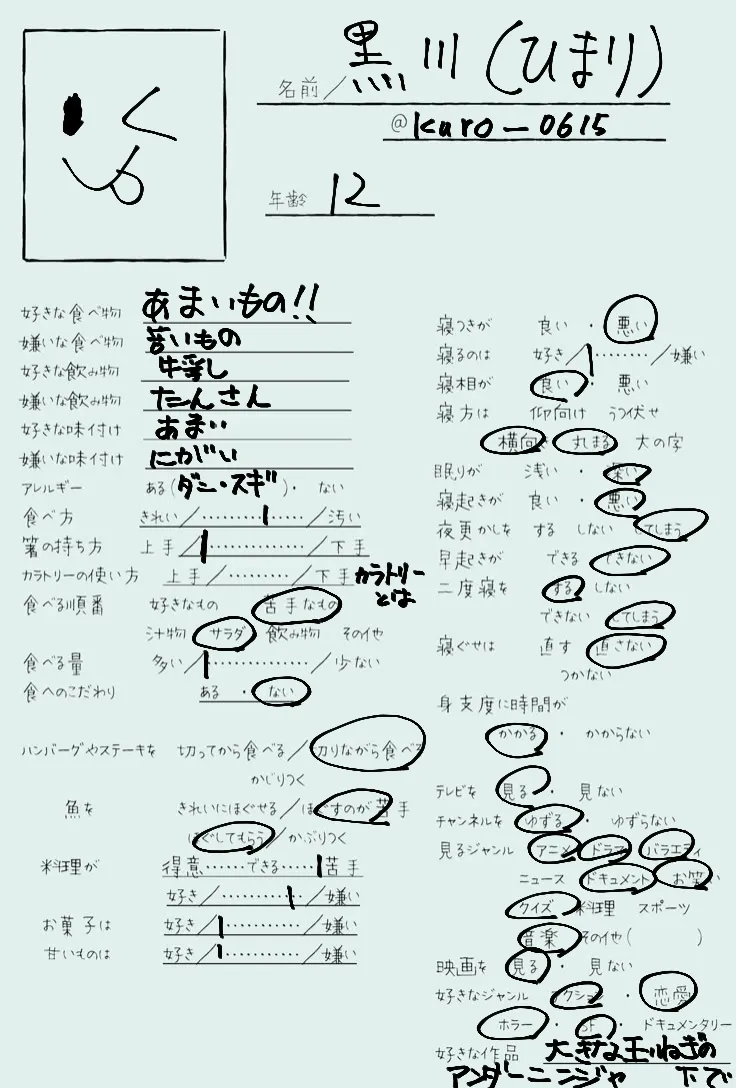 名前／黒川(ひまり)
@kuro-0615
年齢 12
好きな食べ物 あまいもの!!
嫌いな食べ物 苦いもの
好きな飲み物 牛乳
嫌いな飲み物 たんさん
好きな味付け あまい
嫌いな味付け にがい
アレルギー ある(ダニ・スギ)・ない
食べ方 きれい／············／汚い
箸の持ち方 上手／············／下手
カラトリーの使い方 上手／·········／下手 カラトリーとは
食べる順番 好きなもの 苦手なもの
汁物 サラダ 飲み物 その他
食べる量 多い／············／少ない
食へのこだわり ある・ない
ハンバーグやステーキを 切ってから食べる／切りながら食べる
かじりつく
魚を きれいにほぐせる／ほぐすのが苦手
ほぐしてもらう／かぶりつく
料理が 得意······できる······苦手
好き／············／嫌い
お菓子は 好き／············／嫌い
甘いものは 好き／············／嫌い
寝つきが 良い・悪い
寝るのは 好き／·········／嫌い
寝相が 良い・悪い
寝方は 仰向け うつ伏せ
横向き 丸まる 大の字
眠りが 浅い・深い
寝起きが 良い・悪い
夜更かしを する しない してしまう
早起きが できる できない
二度寝を する しない
できない してしまう
寝ぐせは 直す 直さない
つかない
身支度に時間が
かかる・かからない
テレビを 見る・見ない
チャンネルを ゆずる・ゆずらない
見るジャンル アニメ ドラマ バラエティ
ニュース ドキュメント お笑い
クイズ 料理 スポーツ
音楽 その他( )
映画を 見る・見ない
好きなジャンル アクション・恋愛
ホラー・SF・ドキュメンタリー
好きな作品 大きな玉ねぎの
アンダーニンジャ 下で